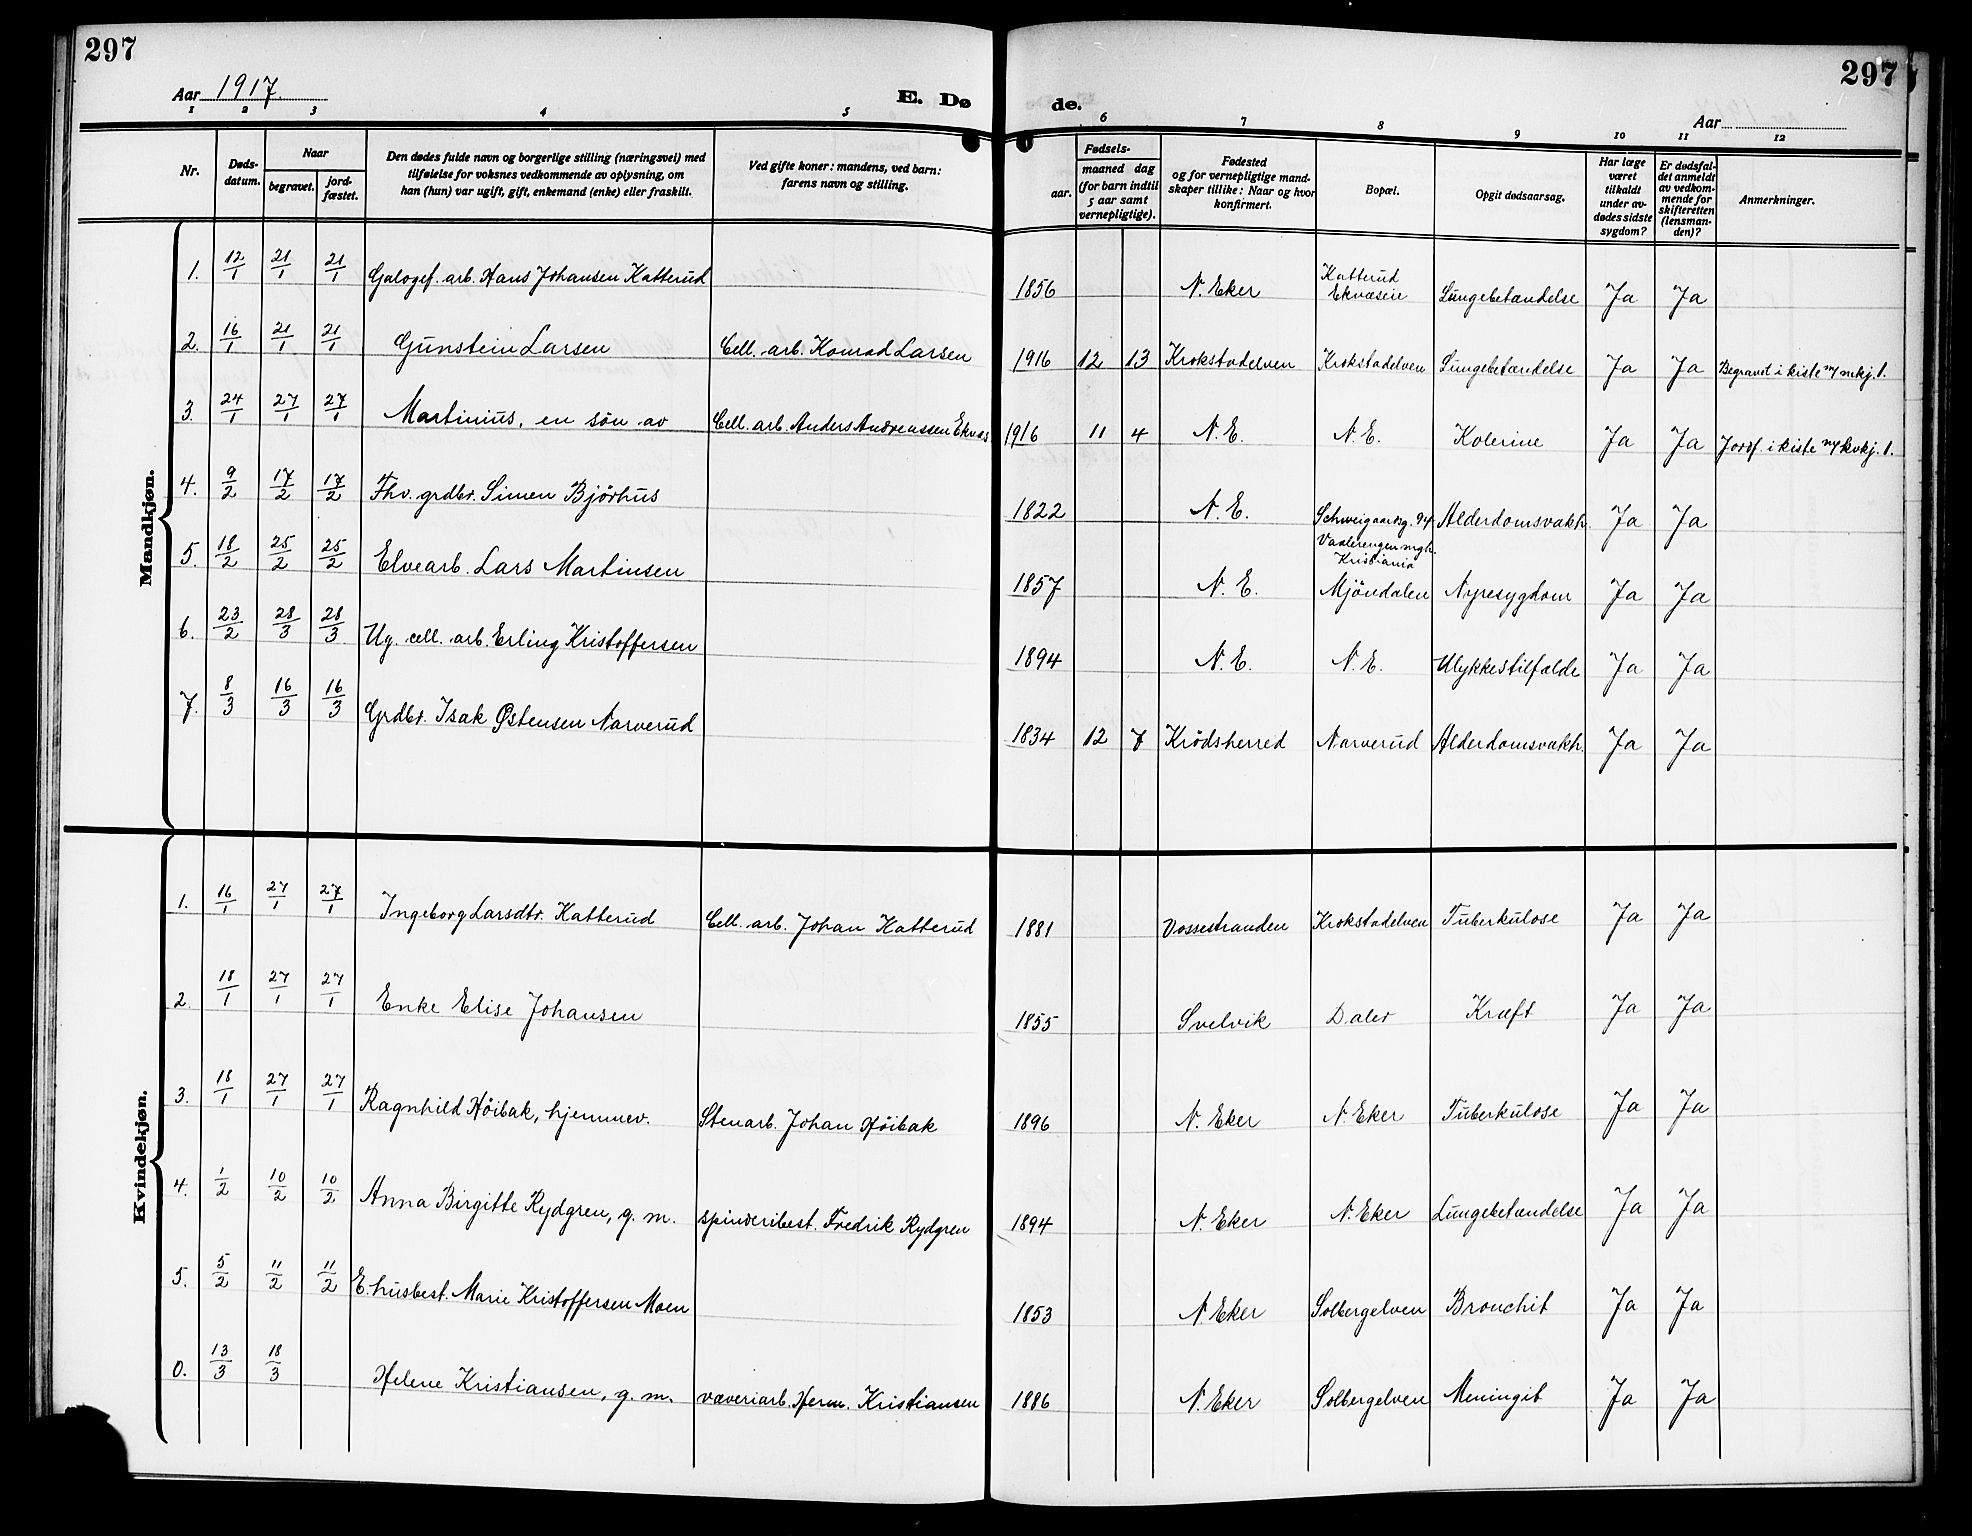 297
297
Aar 1917
E. Dø
de.
Aar
1 2 3 4 5
6 7 8 9 10 11 12
Nr.
Døds-
datum.
Naar
begravet.
jord-
fæstet.
Den dødes fulde navn og borgerlige stilling (næringsvei) med
tilføielse for voksnes vedkommende av oplysning, om
han (hun) var ugift, gift, enkemand (enke) eller fraskilt.
Ved gifte koner: mandens, ved barn:
farens navn og stilling.
Fødsels-
aar.
maaned dag
(for barn indtil
5 aar samt
vernepligtige).
Fødested
og for vernepligtige mand-
skaper tillike: Naar og hvor
konfirmert.
Bopæl.
Opgit dødsaarsag.
Har læge
været
tilkaldt
under av-
dødes sidste
sygdom?
Er dødsfal-
det anmeldt
av vedkom-
mende for
skifteretten
(lensman-
den)?
Anmerkninger.
Mandkjøn.
1. 12/1 21/1 21/1 Galogef. arb. Hans Johansen Katterud 1856 N. Eker Katterud Ekvæseie Lungebetændelse Ja Ja
2. 16/1 21/1 21/1 Gunstein Larsen Cell. arb. Konrad Larsen 1916 12 13 Krokstadelven Krokstadelven Lungebetændelse Ja Ja Begravet i kiste m/ mkj. 1.
3. 24/1 27/1 27/1 Martinius, en søn av Cell. arb. Anders Andreassen Ekvæs 1916 11 4 N. E. N. E. Kolerine Ja Ja Jordf. i kiste m/ kvkj. 1.
4. 9/2 17/2 17/2 Fhv. grdbr. Simen Bjørhus 1822 N. E. Schweigaardsg. 94 Vaalerengen mgh. Kristiania Alderdomsvakh. Ja Ja
5. 18/2 25/2 25/2 Elvearb. Lars Martinsen 1857 N. E. Mjöndalen Nyresygdom Ja Ja
6. 23/2 28/3 28/3 Ug. cell. arb. Erling Kristoffersen 1894 N. E. N. E. Ulykkestilfælde Ja Ja
7. 8/3 16/3 16/3 Grdbr. Isak Østensen Narverud 1834 12 7 Krödsherred Narverud Alderdomsvakh. Ja Ja
Kvindekjøn.
1. 16/1 27/1 27/1 Ingeborg Larsdtr. Katterud Cell. arb. Johan Katterud 1881 Vossestranden Krokstadelven Tuberkulose Ja Ja
2. 18/1 27/1 27/1 Enke Elise Johansen 1855 Svelvik Daler Kræft Ja Ja
3. 18/1 27/1 27/1 Ragnhild Høibak, hjemmev. Stenarb. Johan Høibak 1896 N. Eker N. Eker Tuberkulose Ja Ja
4. 1/2 10/2 10/2 Anna Birgitte Rydgren, g. m. spinderibest. Fredrik Rydgren 1894 N. Eker N. Eker Lungebetændelse Ja Ja
5. 5/2 11/2 11/2 E. husbest. Marie Kristoffersen Moen 1853 N. Eker Solbergelven Bronchit Ja Ja
0. 13/3 18/3 Helene Kristiansen, g. m. væveriarb. Herm. Kristiansen 1886 N. Eker Solbergelven Meningit Ja Ja